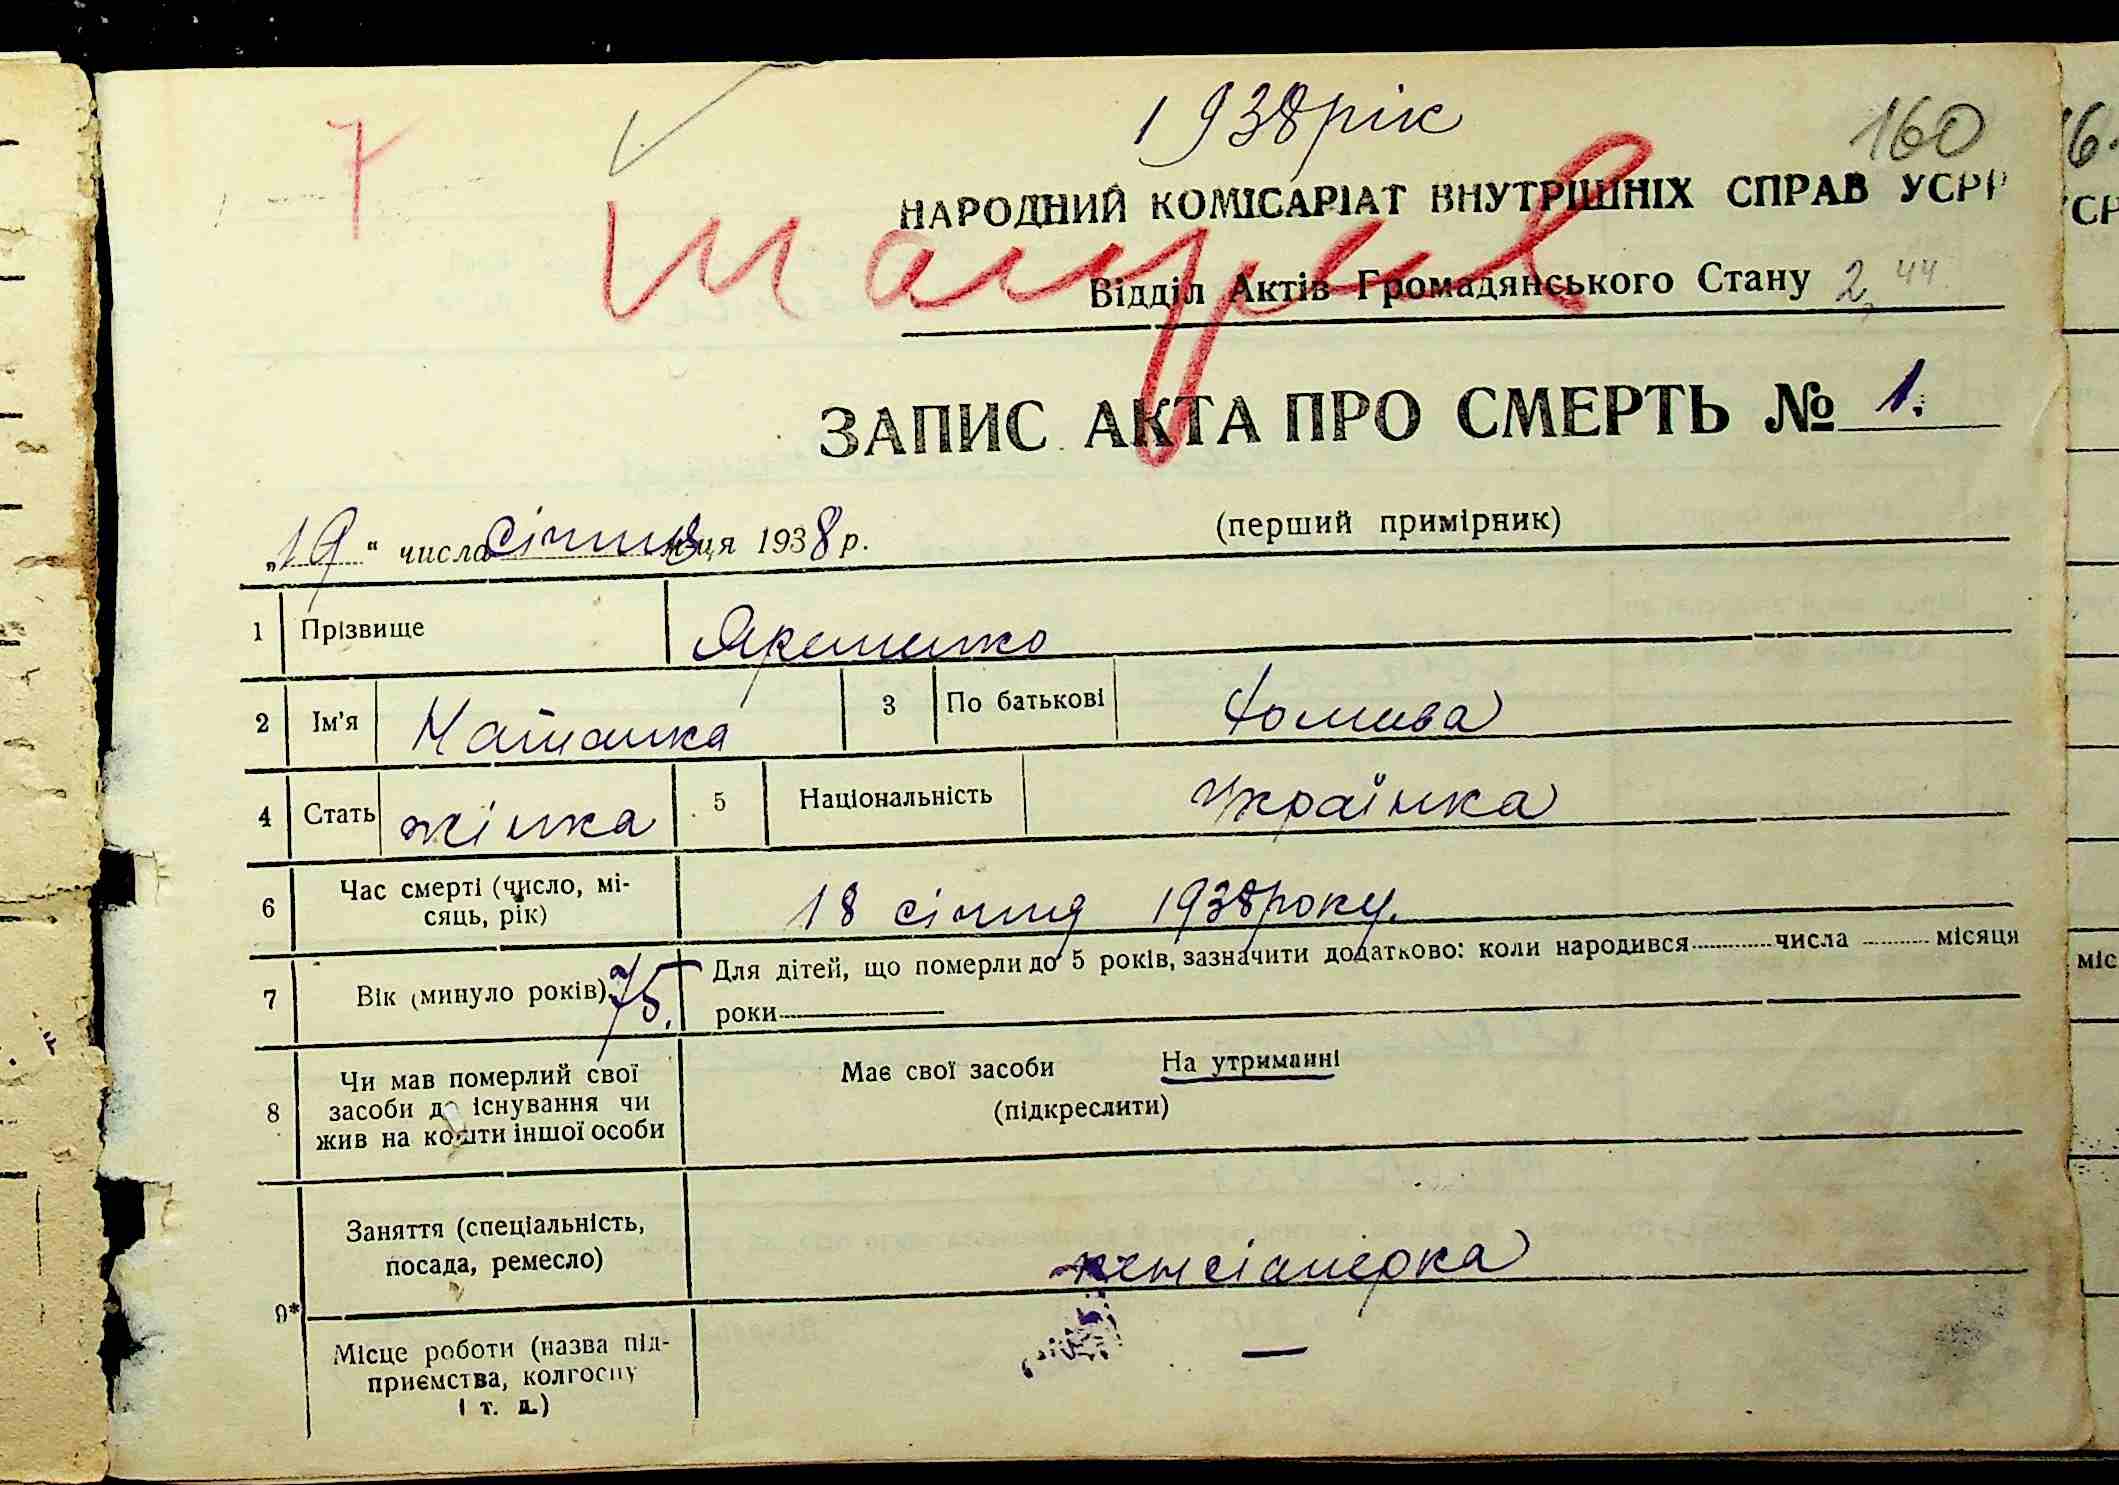 1938 рік
160
7
НАРОДНИЙ КОМІСАРІАТ ВНУТРІШНІХ СПРАВ УСРР
Відділ Актів Громадянського Стану 2,44
ЗАПИС АКТА ПРО СМЕРТЬ № 1.
(перший примірник)
„19“ числа січня м-ця 1938 р.
1 Прізвище Яременко
2 Ім'я Наталка 3 По батькові Фомива
4 Стать жінка 5 Національність Українка
6 Час смерті (число, мі-
сяць, рік) 18 січня 1938 року.
7 Вік (минуло років) 75. Для дітей, що померли до 5 років, зазначити додатково: коли народився числа місяця
роки
8 Чи мав померлий свої
засоби до існування чи
жив на кошти іншої особи
Має свої засоби На утриманні
(підкреслити)
9* Заняття (спеціальність,
посада, ремесло) пенсіонерка
Місце роботи (назва під-
приємства, колгоспу
і т. д.) —